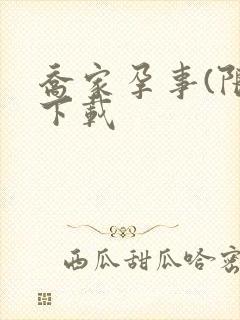 乔家孕事(限
下载
西瓜甜瓜哈密